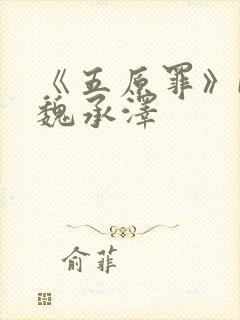 《五原罪》
魏承泽
俞菲